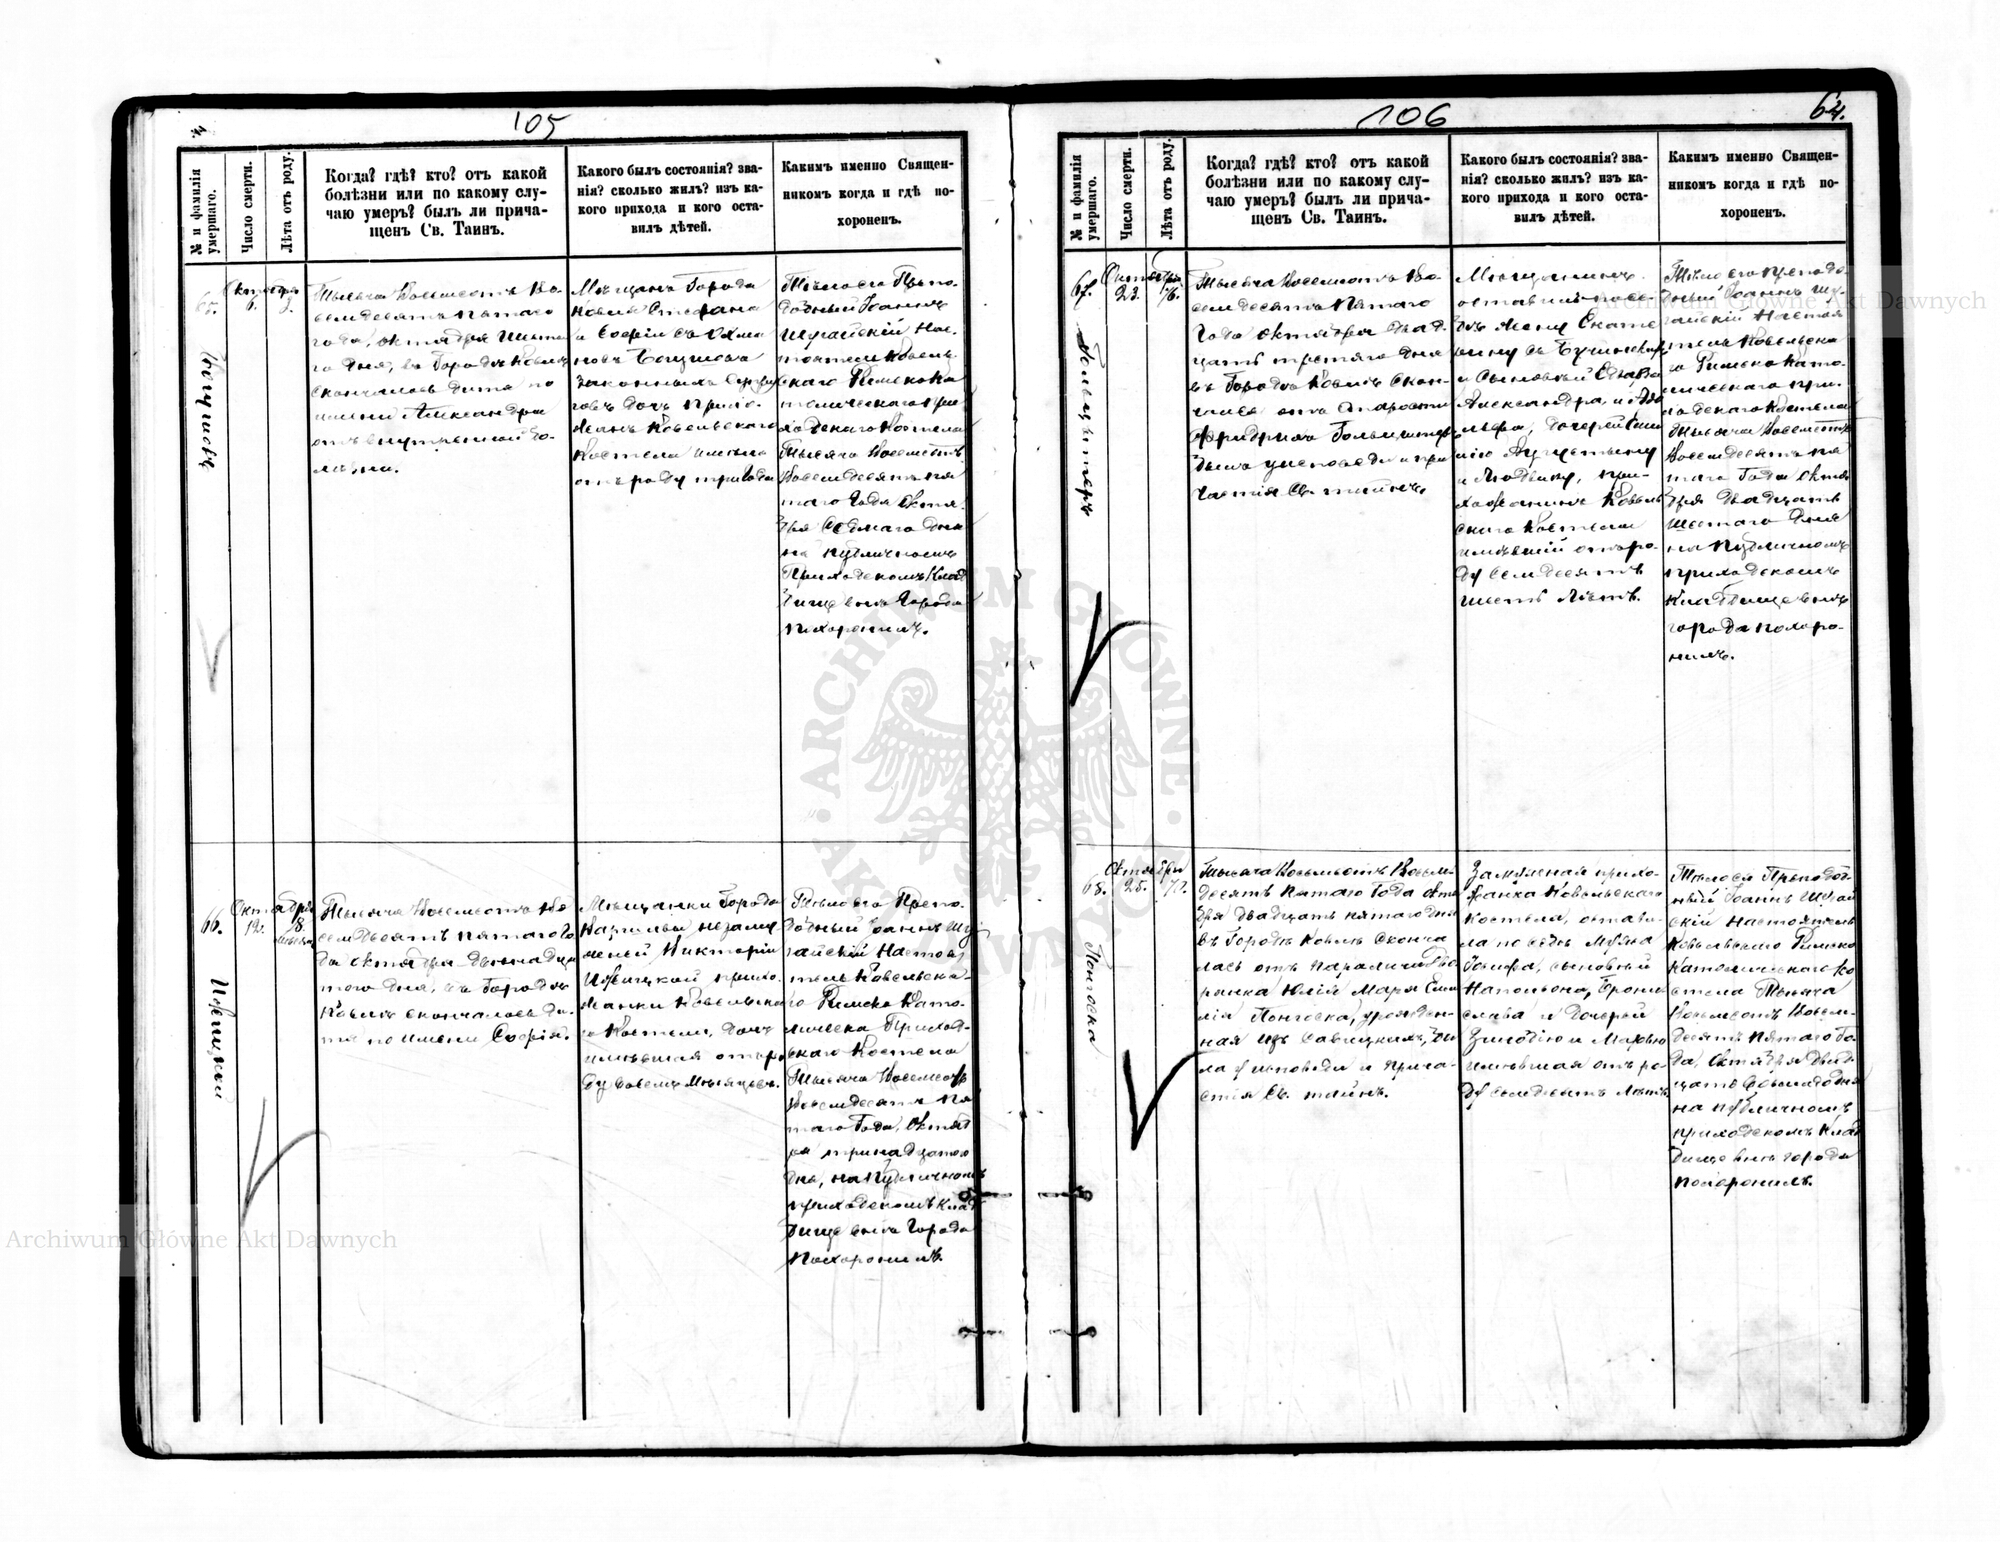 105
№ и фамилія умершаго.
Число смерти.
Лѣта отъ роду.
Когда? гдѣ? кто? отъ какой
болѣзни или по какому слу-
чаю умеръ? былъ ли прича-
щенъ Св. Таинъ.
Какого былъ состоянія? зва-
нія? сколько жилъ? изъ ка-
кого прихода и кого оста-
вилъ дѣтей.
Какимъ именно Священ-
никомъ когда и гдѣ по-
хороненъ.
65.
Октября
6.
3.
Тысяча восемсотъ во-
семдесятъ пятаго
года, октября шеста-
го дня, въ Городѣ Ковлѣ
скончалось дитя по
имени Александра
отъ внутренной бо-
лѣзни.
Мѣщанъ Города
Ковля Стефана
и Софіи съ
законныхъ Супру
говъ дочь прихо-
жанъ Ковельскаго
Костела имѣла
отъ роду три года
Тѣло его Препо-
добный Іоаннъ
Шугайскій Нас-
тоятель Ковель-
скаго Римско Ка
толическаго при
ходскаго Костела
Тысяча Восемсотъ
Восемдесятъ пя
таго Года Октя-
бря Седмаго дня
на публичномъ
Приходскомъ Клад
бище внѣ Города
похоронилъ.
66.
Октября
12.
8.
Тысяча Восемсотъ Во-
семдесятъ пятаго Го-
да Октября двенадца
таго дня, въ Городѣ
Ковлѣ скончалось ди-
тя по имени Софія.
Мѣщанки Города
незаму
жней, Викторіи
прихо-
жанки Ковельска
го Костела, дочь
имѣвшая отъ ро
ду восемь Мѣсяцевъ.
Тѣло его Препо-
добный Іоаннъ Шу-
гайскій Настоя-
тель Ковельска-
го Римско Като-
лическа Приход-
скаго Костела
Тысяча Восемсотъ
Восемдесятъ Пя
таго Года, Октяб
ря тринадцатаго
дня, на публичномъ
приходскомъ Клад
бище внѣ Города
Похоронилъ.
106
64.
№ и фамилія умершаго.
Число смерти.
Лѣта отъ роду.
Когда? гдѣ? кто? отъ какой
болѣзни или по какому слу-
чаю умеръ? былъ ли прича-
щенъ Св. Таинъ.
Какого былъ состоянія? зва-
нія? сколько жилъ? изъ ка-
кого прихода и кого оста-
вилъ дѣтей.
Какимъ именно Священ-
никомъ когда и гдѣ по-
хороненъ.
67.
Октября
23.
76.
Тысяча Восемсотъ Во-
семдесятъ Пятаго
Года Октября двад-
цать третяго дня
въ Городѣ Ковлѣ Скон-
чался отъ Старости
Фридрихъ
былъ у исповеди и при
частія Св. тайнъ.
Мѣщанинъ.
оставилъ послѣ
себѣ Жену Екате
рину съ
и Сыновьей
Александра, и Адо
льфа, дочерей
Августину
и Людвику, при-
хожанинъ Ковель
скаго Костела
имѣвшій отъ ро-
ду семдесятъ
шесть Лѣтъ.
Тѣло его Преподо-
бный Іоаннъ Шу-
гайскій Настоя
тель Ковельска
го Римско Като-
лическаго при-
ходскаго Костела
Тысяча Восемсотъ
Восемдесятъ пя
таго Года Октя
бря двадцать
шестаго Дня
на публичномъ
приходскомъ
Кладбище внѣ
города похоро-
нилъ.
68.
Октября
25.
Понговска
Тысяча Восемьсотъ Восем-
десятъ Пятаго Года Октя
бря двадцать пятаго дня
въ Городѣ Ковлѣ Сконча
лась отъ паралича дво
рянка Юлій Марія Еми
лія Понговска, урожден-
ная изъ Савицкихъ, бы
ла у исповеди и прича-
стія Св. тайнъ.
Замужная прихо-
жанка Ковельскаго
Костела, остави-
ла по себѣ Мужа
Іосифа, сыновьей
Наполіона, Брони
слава и дочерей
и Марію
имѣвшая отъ ро-
ду семдесятъ Лѣтъ
Тѣло ея Преподоб-
ный Іоаннъ Шугай
скій Настоятель
Ковельскаго Римско
Католическаго Ко
стела Тысяча
Восемсотъ Восем-
десятъ Пятаго Го-
да, Октября двад-
цать седьмаго дня
на публичномъ
приходскомъ Клад
бище внѣ города
похоронилъ.
Archiwum Główne Akt Dawnych
Archiwum Główne Akt Dawnych
ARCHIWUM GŁÓWNE AKT DAWNYCH